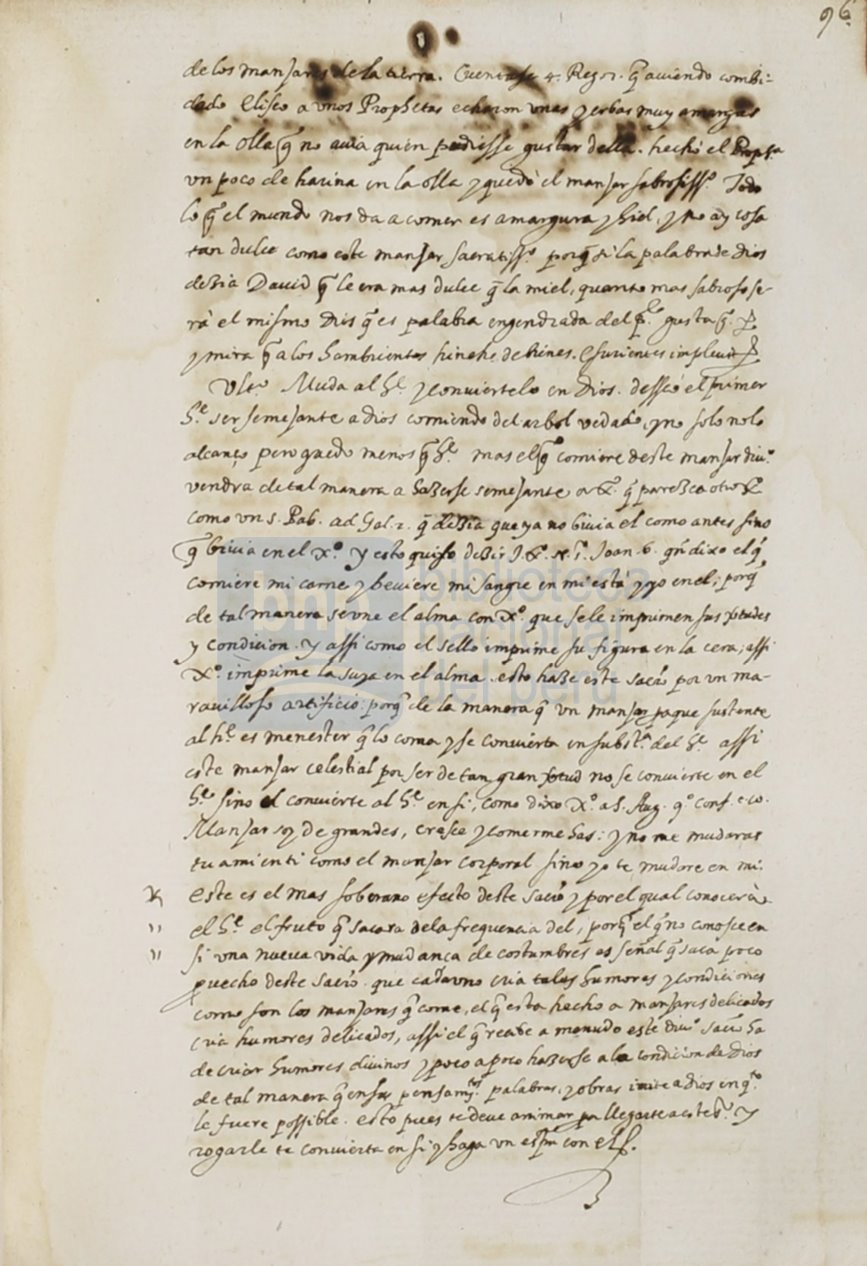 96
de los manjares de la tierra. Cuentase 4. Reg. 2. q̃ aviendo combi-
dado Eliseo a unos Prophetas echaron unas yerbas muy amargas
en la olla q̃ no avia quien pudiesse gustar della. hechó el Propta
un poco de harina en la olla y quedó el manjar sabrosissº. Todo
lo q̃ el mundo nos da a comer es amargura y hiel, y no ay cosa
tan dulce como este manjar sacratissº porq̃ si la palabra de Dios
dezia David q̃ le era mas dulce q̃ la miel, quanto mas sabroso se-
rà el mismo Dios q̃ es palabra engendrada del pe. gusta
y mira q̃ a los hambrientos hinche de bienes. Esurientes implevit
Ultº Muda al he. y conviertelo en Dios. desseó el primer
he. ser semejante a dios comiendo del arbol vedado, y no solo no lo
alcanço pero quedo menos q̃ he. mas el q̃ comiere deste manjar divº
vendra de tal manera a hazerse semejante a q̃ parezca otro
como un S. Pab. ad Gal. 2. q̃ dezia que ya no bivia el como antes sino
q̃ bivia en el Xº. y esto quiso dezir Joan. 6. qñ dixo el q̃
comiere mi carne y beviere mi sangre en mi está y yo en el; porq̃
de tal manera se une el alma con Xº. que se le imprimen sus virtudes
y condicion. y assi como el sello imprime su figura en la cera; assi
Xº. imprime la suya en el alma. esto haze este sacrº por un ma-
ravilloso artificio: porq̃ de la manera q̃ un manjar paque sustente
al he. es menester q̃ lo coma y se convierta en substa. del he. assi
este manjar celestial por ser de tan gran virtud no se convierte en el
he. sino el convierte al he. en si, como dixo Xº. a S. Aug. 9º conf. c. 10.
Manjar soy de grandes, crece y comerme has: y no me mudaras
tu a mi en ti como el manjar corporal sino yo te mudare en mi.
Este es el mas soberano efecto deste sacrº y por el qual conocera
el he. el fruto q̃ sacara de la frequencia del, porq̃ el q̃ no conosce en
si una nueva vida y mudança de costumbres es señal q̃ saca poco
pvecho deste sacrº. que cada uno cria tales humores y condiciones
como son los manjares q̃ come, el q̃ esta hecho a manjares delicados
cria humores delicados, assi el q̃ recibe a menudo este divº sacrº ha
de criar humores divinos y poco a poco hazerse a la condicion de Dios
de tal manera q̃ en sus pensamtos. palabras, y obras imite a dios en qto
le fuere possible. esto pues te deve animar pa llegarte a este y
rogarle te convierta en si y haga un espu con el